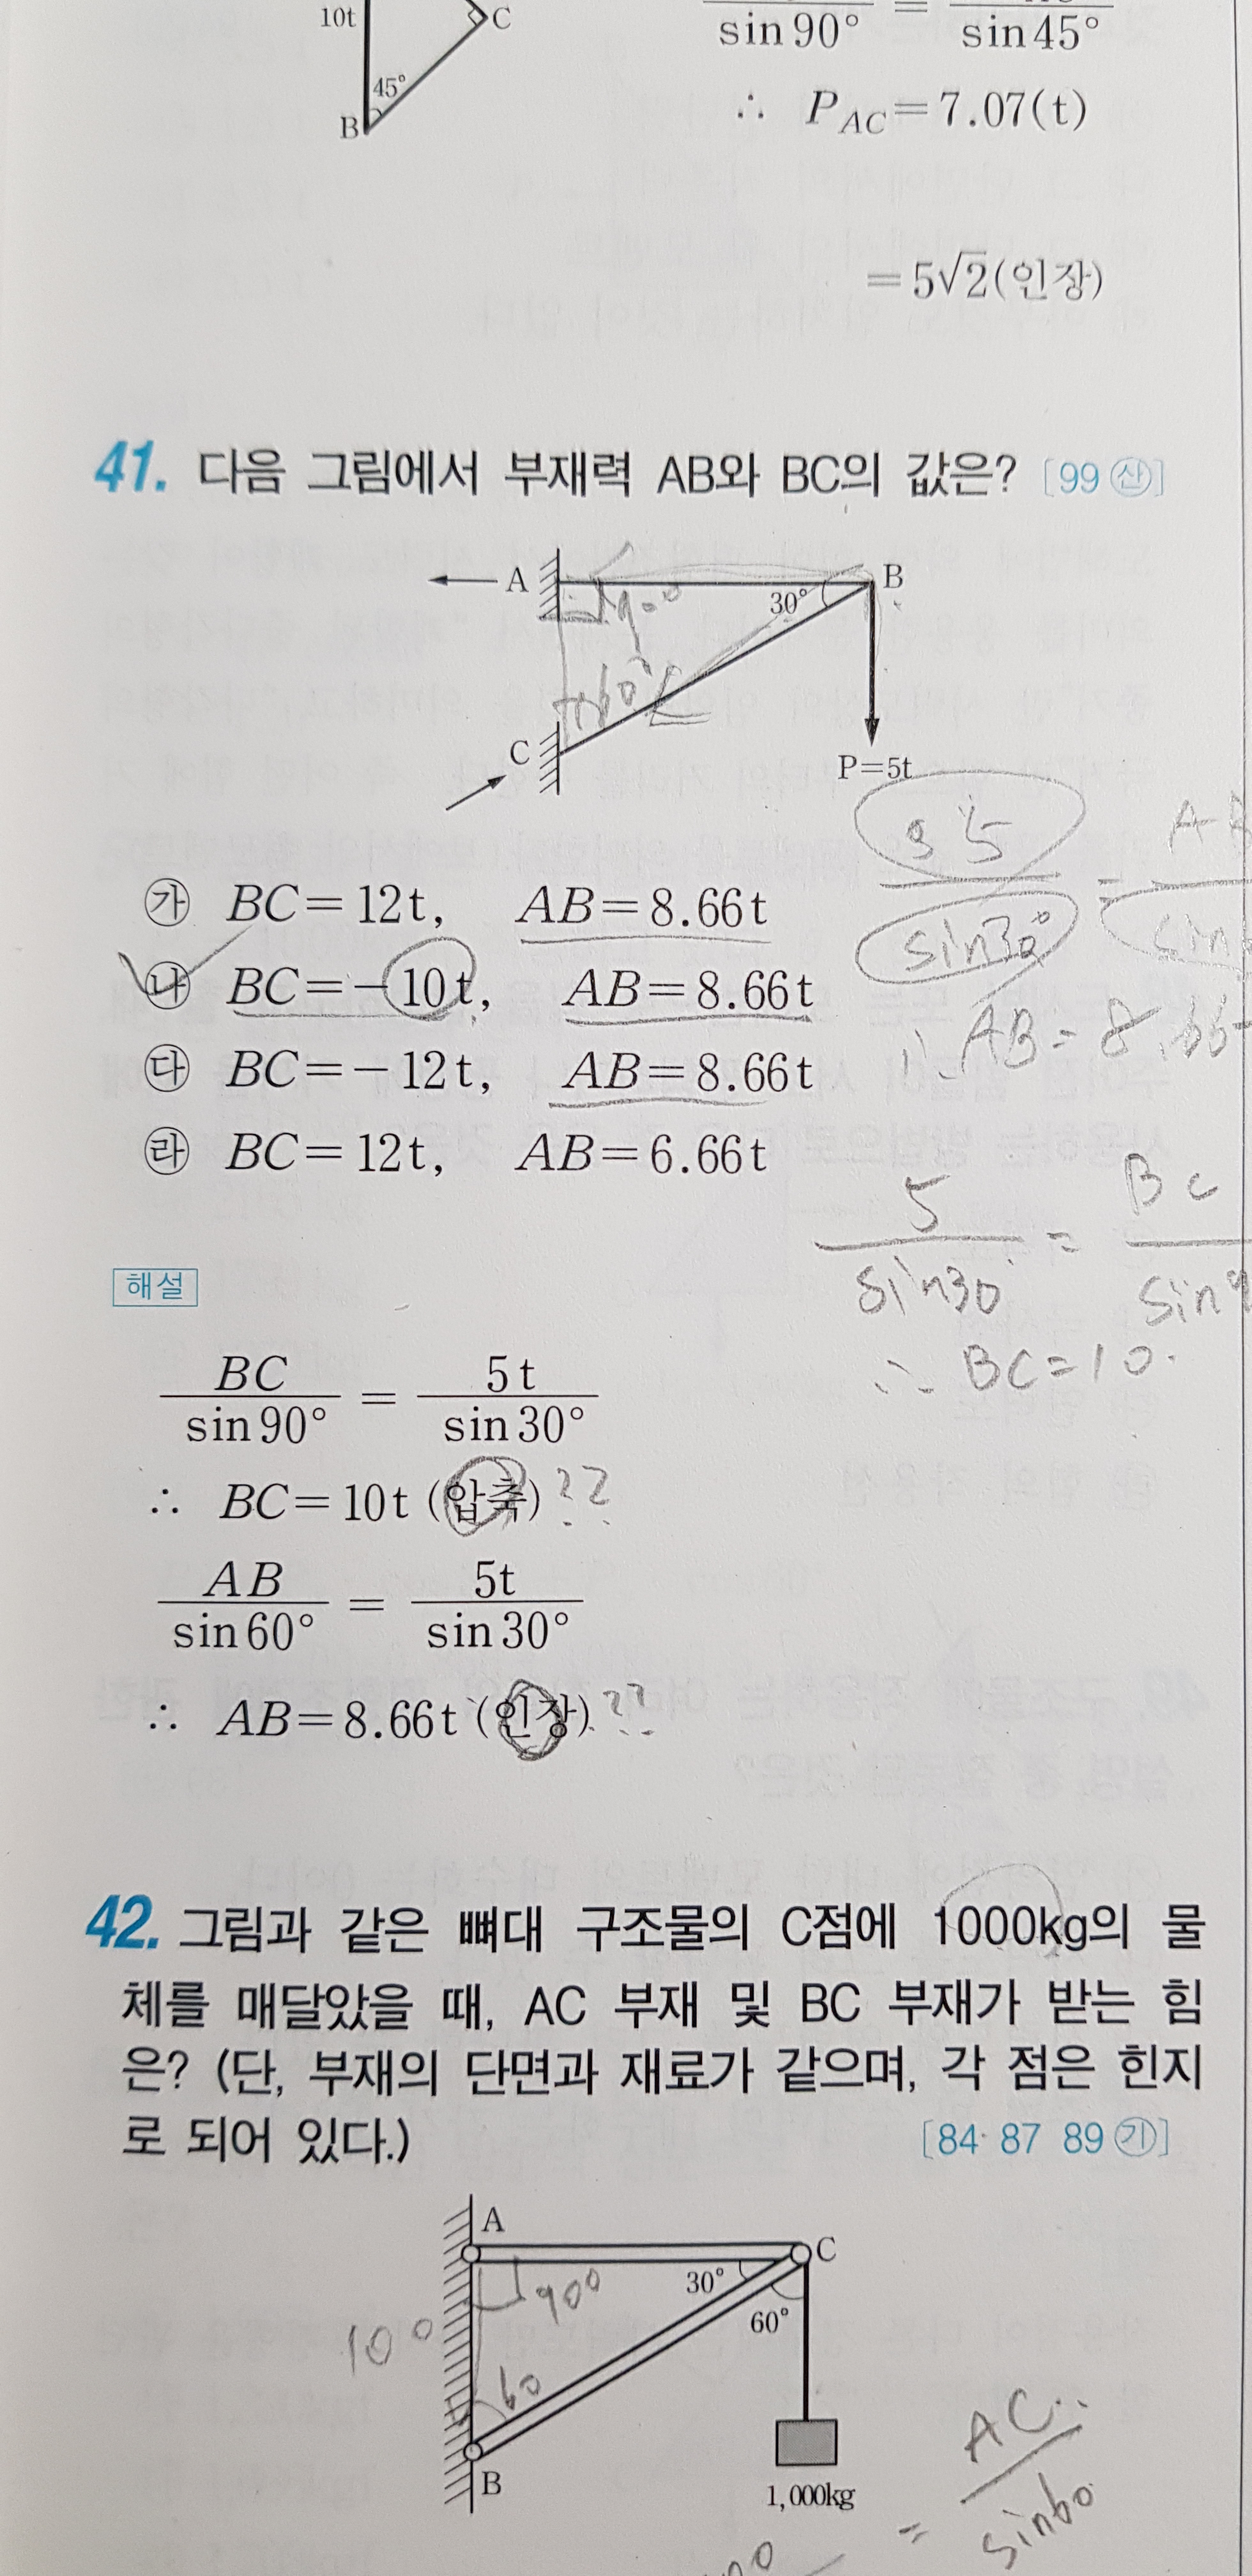 10t
C
45°
B
sin90° = sin45°
∴ P_AC=7.07(t)
=5√2(인장)
41. 다음 그림에서 부재력 AB와 BC의 값은? [99 ㉮산]
A
B
30°
90°
60°
C
P=5t
5
sin30°
=
㉮ BC=12t, AB=8.66t
㉯ BC=-10t, AB=8.66t
㉰ BC=-12t, AB=8.66t
㉱ BC=12t, AB=6.66t
∴ AB=8.66
5/sin30 = BC/sin9
∴ BC=10.
해설
BC/sin90° = 5t/sin30°
∴ BC=10t (압축)??
AB/sin60° = 5t/sin30°
∴ AB=8.66t (인장)??
42. 그림과 같은 뼈대 구조물의 C점에 1000kg의 물
체를 매달았을 때, AC 부재 및 BC 부재가 받는 힘
은? (단, 부재의 단면과 재료가 같으며, 각 점은 힌지
로 되어 있다.) [84 87 89 ㉮기]
A
C
90°
30°
60°
10°
60
B
1,000kg
= AC/sin60